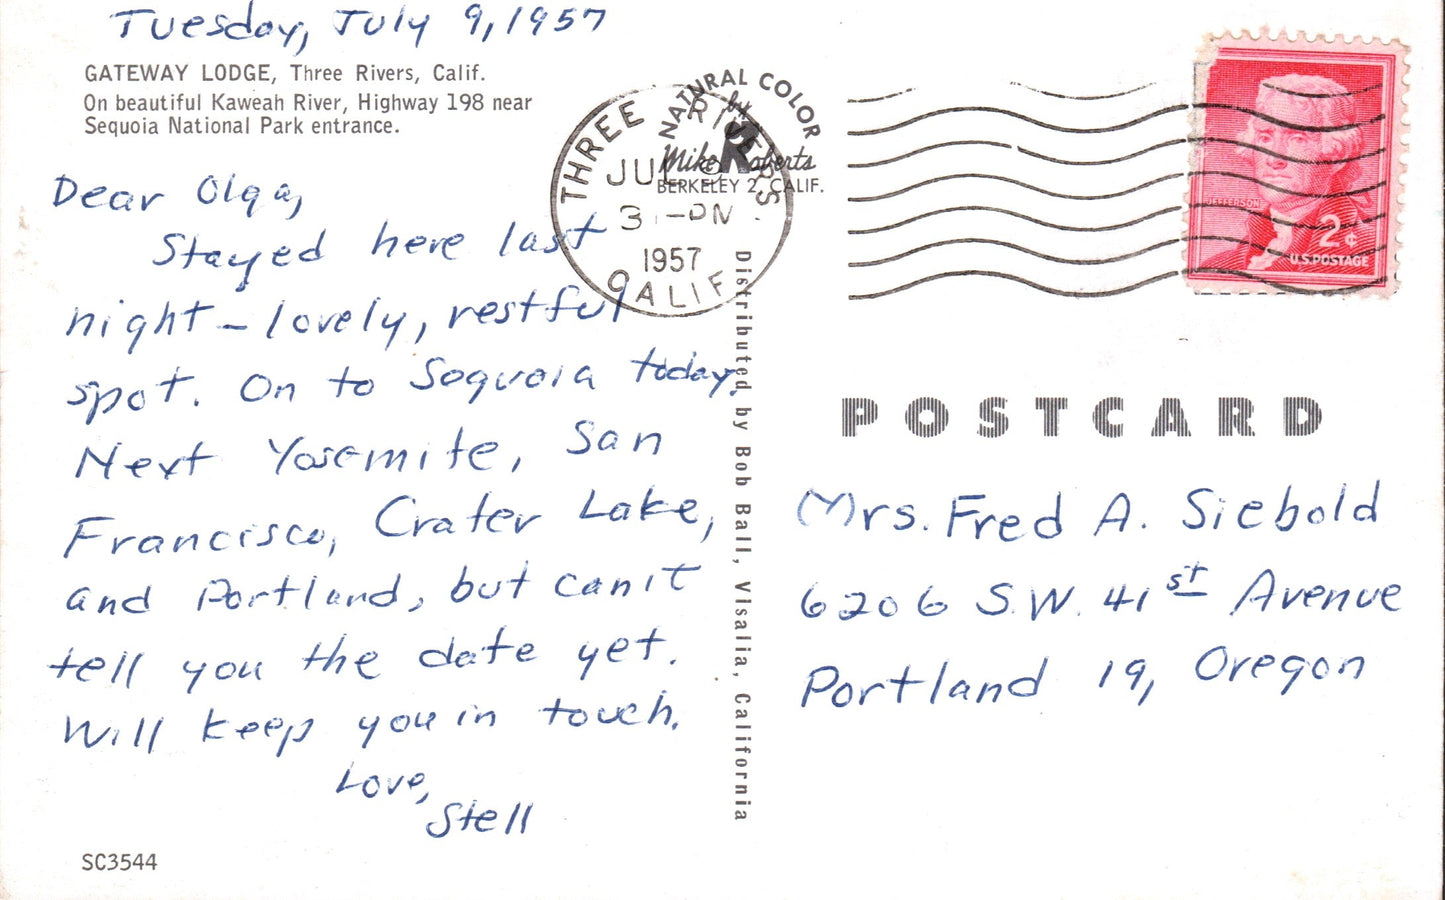 Tuesday, July 9, 1957
GATEWAY LODGE, Three Rivers, Calif.
On beautiful Kaweah River, Highway 198 near
Sequoia National Park entrance.
Dear Olga,
Stayed here last
night – lovely, restful
spot. On to Sequoia today.
Next Yosemite, San
Francisco, Crater Lake,
and Portland, but can't
tell you the date yet.
Will keep you in touch.
Love,
Stell
SC3544
THREE RIVERS
JUL 9
3 -PM
1957
CALIF
NATURAL COLOR
by
Mike Roberts
BERKELEY 2, CALIF.
Distributed by Bob Ball, Visalia, California
JEFFERSON
2¢
U.S. POSTAGE
POSTCARD
Mrs. Fred A. Siebold
6206 S.W. 41st Avenue
Portland 19, Oregon